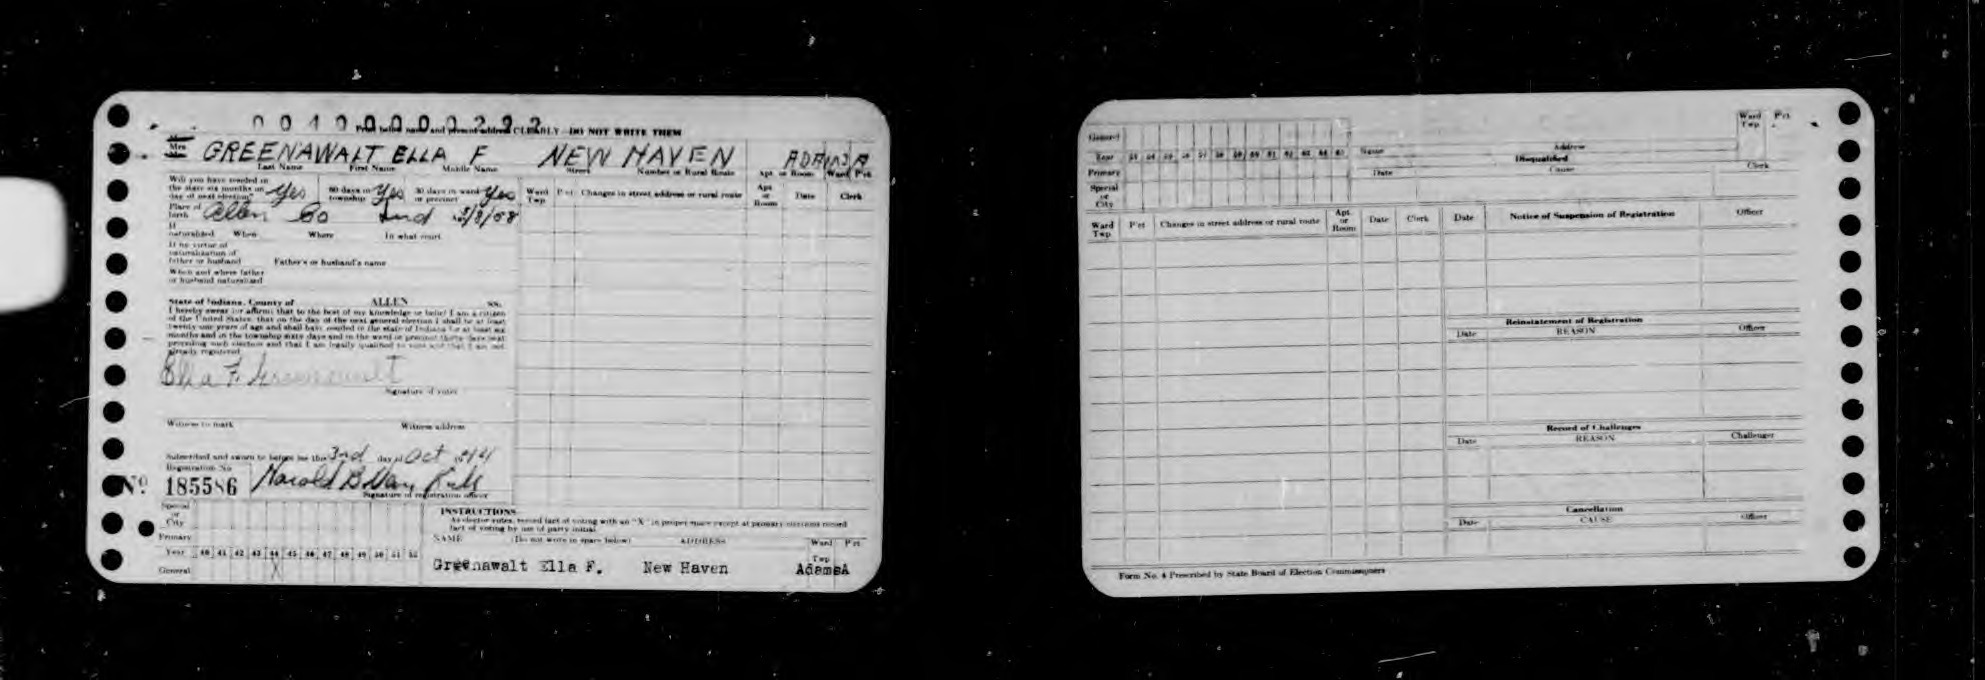 00400000292
Print below name and present address CLEARLY—DO NOT WRITE THEM
Mrs GREENAWALT ELLA F NEW HAVEN ADAMS A
Last Name First Name Middle Name Street Number or Rural Route Apt. or Room Ward Pct
Will you have resided in
the state six months on Yes 60 days in Yes 30 days in ward Yes
day of next election? township or precinct
Ward Twp Pct Changes in street address or rural route Apt. or Room Date Clerk
Place of birth Allen Co Ind /8/08
If naturalized When Where In what court
If by virtue of
naturalization of
father or husband Father's or husband's name
When and where father
or husband naturalized
State of Indiana, County of ALLEN ss.
I hereby swear (or affirm) that to the best of my knowledge or belief I am a citizen
of the United States, that on the day of the next general election I shall be at least
twenty-one years of age and shall have resided in the state of Indiana for at least six
months and in the township sixty days and in the ward or precinct thirty days next
preceding such election and that I am legally qualified to vote and that I am not
already registered
Ella F. Greenawalt
Signature of voter
Witness to mark Witness address
Subscribed and sworn to before me this 3rd day of Oct 1944
Registration No
No. 185586 Harold B
Signature of registration officer
Special or City
Primary
Year 40 41 42 43 44 45 46 47 48 49 50 51 52
General X
INSTRUCTIONS
As elector votes, record fact of voting with an "X" in proper space except at primary elections record
fact of voting by use of party initial.
NAME (Do not write in space below) ADDRESS Ward Twp Pct
Greenawalt Ella F. New Haven AdamsA
General
Year 53 54 55 56 57 58 59 60 61 62 63 64 65
Primary
Special or City
Name Address Ward Twp Pct
Disqualified
Date Cause Clerk
Ward Twp Pct Changes in street address or rural route Apt. or Room Date Clerk
Date Notice of Suspension of Registration Officer
Reinstatement of Registration
Date REASON Officer
Record of Challenges
Date REASON Challenger
Cancellation
Date CAUSE Officer
Form No. 4 Prescribed by State Board of Election Commissioners